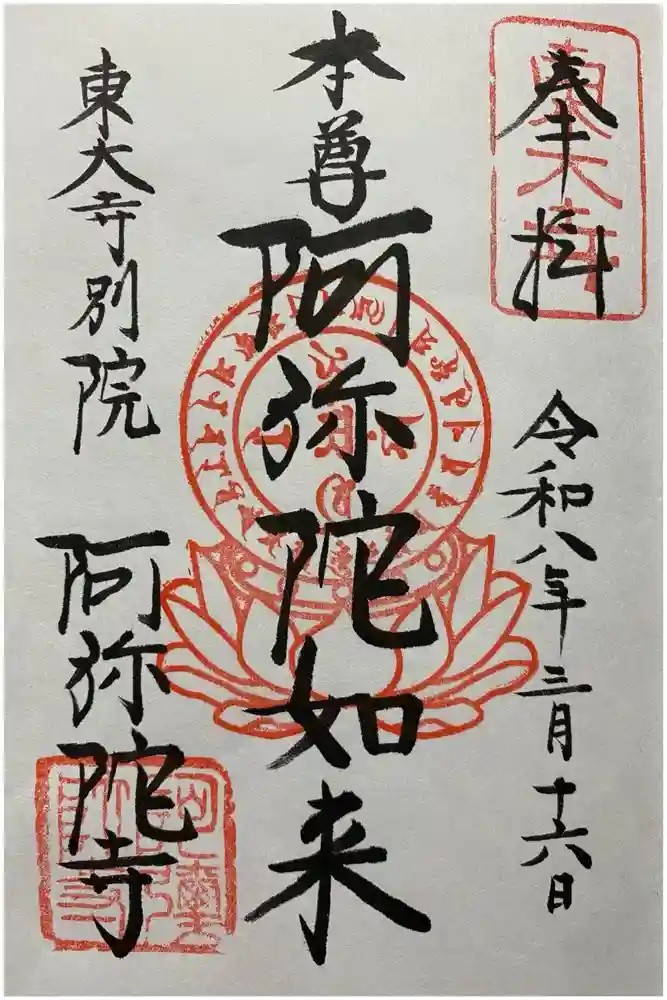 奉拝
東大寺
令和八年三月十六日
本尊
阿弥陀如来
東大寺別院
阿弥陀寺